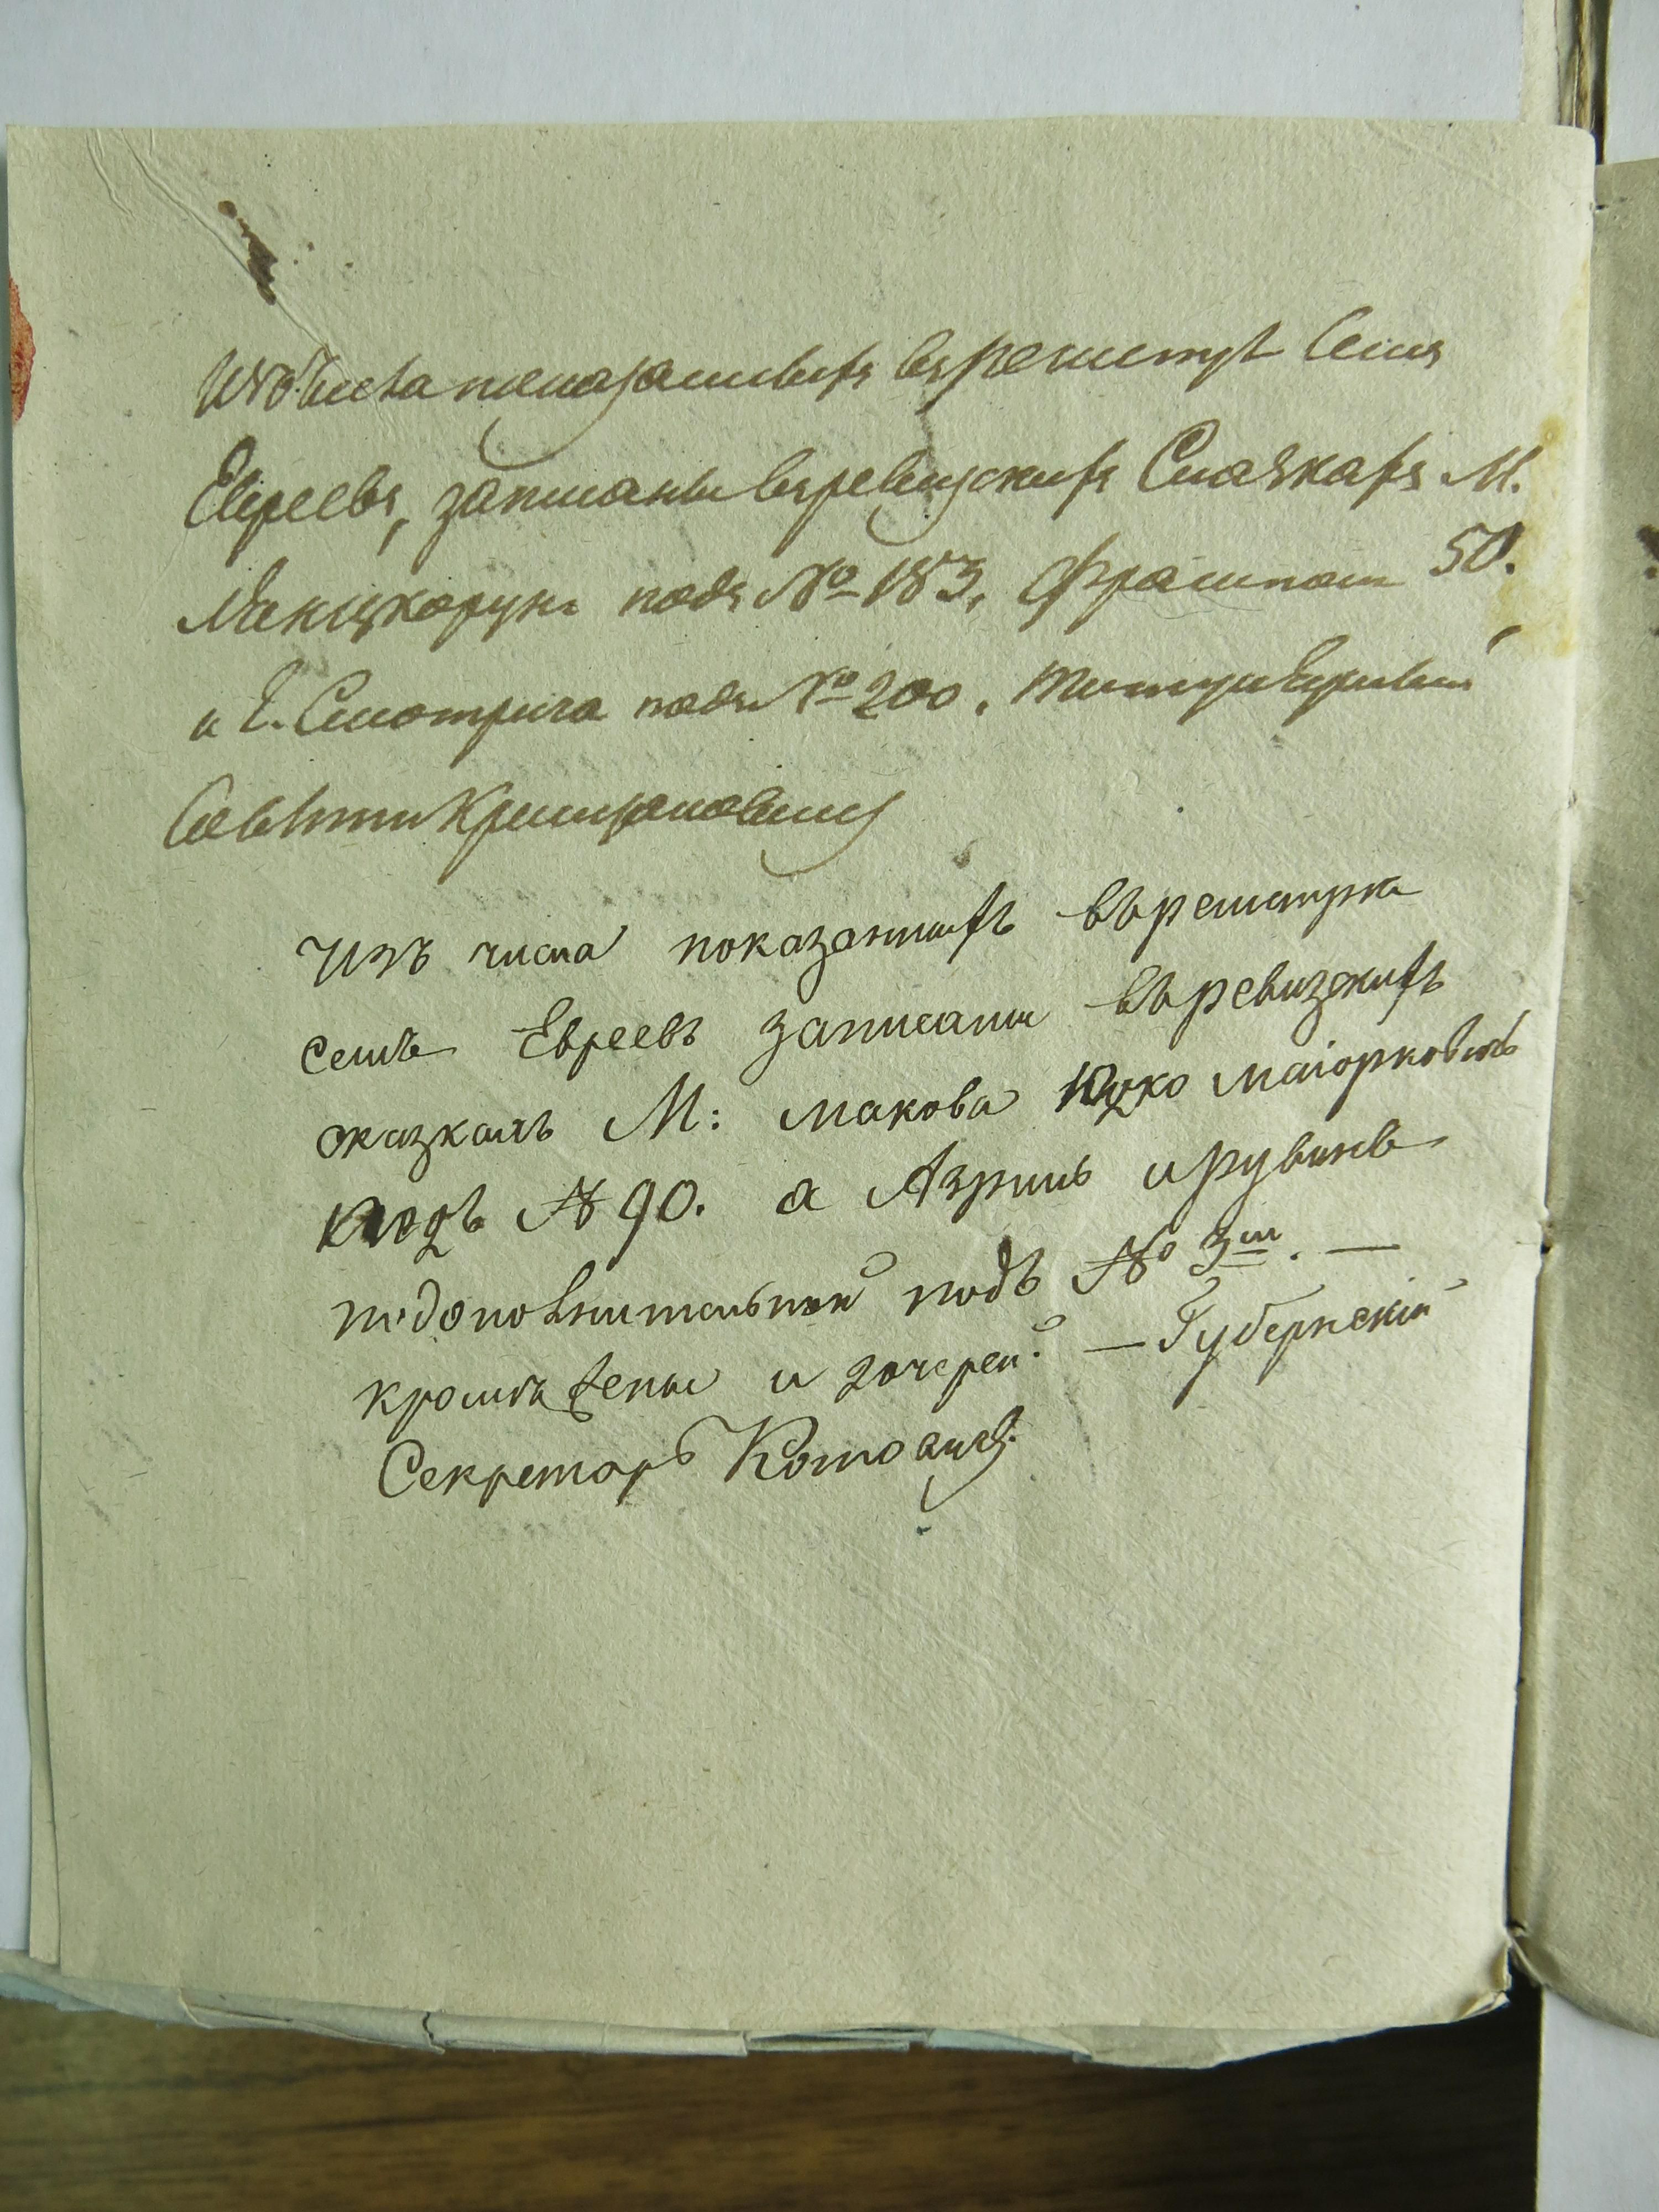 Изъ числа показанныхъ въ реистрѣ Семъ
Евреевъ, записаны въ ревизскихъ Сказкахъ М.
подъ № 183, Фрампол 50.
и Г. Смотрича подъ № 200. Титулярный
Совѣтникъ
Изъ числа показанныхъ въ реистрѣ
семъ Евреевъ записаны въ ревизскихъ
сказкахъ М: Макова Ицко Маіорковичъ
подъ № 90. а Азриль и Рувинъ
подополнительной подъ № 3м. —
кромѣ жены и дочерей. — Губернскій
Секретарь